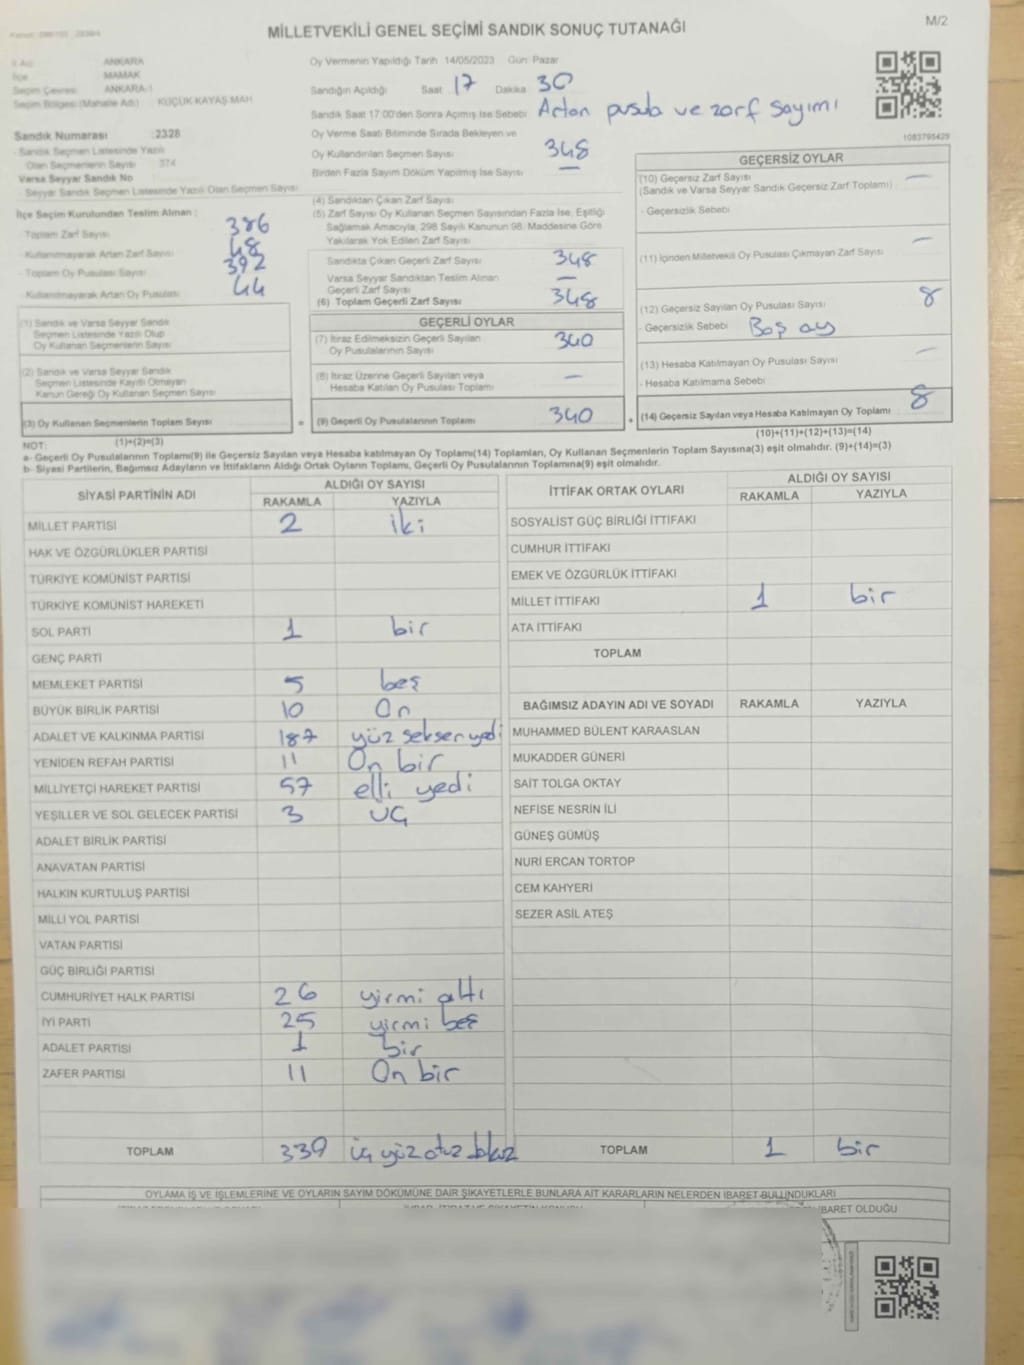 MİLLETVEKİLİ GENEL SEÇİMİ SANDIK SONUÇ TUTANAĞI
M/2
İl Adı: ANKARA
İlçe MAMAK
Seçim Çevresi ANKARA-1
Seçim Bölgesi (Mahalle Adı) : KÜÇÜK KAYAŞ MAH
Sandık Numarası :2328
Sandık Seçmen Listesinde Yazılı
Olan Seçmenlerin Sayısı 374
Varsa Seyyar Sandık No
- Seyyar Sandık Seçmen Listesinde Yazılı Olan Seçmen Sayısı
İlçe Seçim Kurulundan Teslim Alınan :
- Toplam Zarf Sayısı 386
- Kullanılmayarak Artan Zarf Sayısı 48
- Toplam Oy Pusulası Sayısı 392
- Kullanılmayarak Artan Oy Pusulası 44
(1) Sandık ve Varsa Seyyar Sandık
Seçmen Listesinde Yazılı Olup
Oy Kullanan Seçmenlerin Sayısı
(2) Sandık ve Varsa Seyyar Sandık
Seçmen Listesinde Kayıtlı Olmayan
Kanun Gereği Oy Kullanan Seçmen Sayısı
(3) Oy Kullanan Seçmenlerin Toplam Sayısı
(1)+(2)=(3)
Oy Vermenin Yapıldığı Tarih 14/05/2023 Gün: Pazar
Sandığın Açıldığı Saat 17 Dakika 30
Sandık Saat 17:00'den Sonra Açılmış İse Sebebi Artan pusula ve zarf sayımı
Oy Verme Saati Bitiminde Sırada Bekleyen ve
Oy Kullandırılan Seçmen Sayısı 348
Birden Fazla Sayım Döküm Yapılmış İse Sayısı —
(4) Sandıktan Çıkan Zarf Sayısı
(5) Zarf Sayısı Oy Kullanan Seçmen Sayısından Fazla İse, Eşitliği
Sağlamak Amacıyla, 298 Sayılı Kanunun 98. Maddesine Göre
Yakılarak Yok Edilen Zarf Sayısı
Sandıkta Çıkan Geçerli Zarf Sayısı 348
Varsa Seyyar Sandıktan Teslim Alınan
Geçerli Zarf Sayısı —
(6) Toplam Geçerli Zarf Sayısı 348
GEÇERLİ OYLAR
(7) İtiraz Edilmeksizin Geçerli Sayılan
Oy Pusulalarının Sayısı 340
(8) İtiraz Üzerine Geçerli Sayılan veya
Hesaba Katılan Oy Pusulası Toplamı —
= (9) Geçerli Oy Pusulalarının Toplamı 340
1083795429
GEÇERSİZ OYLAR
(10) Geçersiz Zarf Sayısı —
(Sandık ve Varsa Seyyar Sandık Geçersiz Zarf Toplamı)
- Geçersizlik Sebebi
(11) İçinden Milletvekili Oy Pusulası Çıkmayan Zarf Sayısı —
(12) Geçersiz Sayılan Oy Pusulası Sayısı 8
- Geçersizlik Sebebi Boş oy
(13) Hesaba Katılmayan Oy Pusulası Sayısı —
- Hesaba Katılmama Sebebi
+ (14) Geçersiz Sayılan veya Hesaba Katılmayan Oy Toplamı 8
(10)+(11)+(12)+(13)=(14)
NOT:
a- Geçerli Oy Pusulalarının Toplamı(9) ile Geçersiz Sayılan veya Hesaba katılmayan Oy Toplamı(14) Toplamları, Oy Kullanan Seçmenlerin Toplam Sayısına(3) eşit olmalıdır. (9)+(14)=(3)
b- Siyasi Partilerin, Bağımsız Adayların ve İttifakların Aldığı Ortak Oyların Toplamı, Geçerli Oy Pusulalarının Toplamına(9) eşit olmalıdır.
SİYASİ PARTİNİN ADI ALDIĞI OY SAYISI
RAKAMLA YAZIYLA
MİLLET PARTİSİ 2 iki
HAK VE ÖZGÜRLÜKLER PARTİSİ
TÜRKİYE KOMÜNİST PARTİSİ
TÜRKİYE KOMÜNİST HAREKETİ
SOL PARTİ 1 bir
GENÇ PARTİ
MEMLEKET PARTİSİ 5 beş
BÜYÜK BİRLİK PARTİSİ 10 On
ADALET VE KALKINMA PARTİSİ 187 yüz seksen yedi
YENİDEN REFAH PARTİSİ 11 On bir
MİLLİYETÇİ HAREKET PARTİSİ 57 elli yedi
YEŞİLLER VE SOL GELECEK PARTİSİ 3 üç
ADALET BİRLİK PARTİSİ
ANAVATAN PARTİSİ
HALKIN KURTULUŞ PARTİSİ
MİLLİ YOL PARTİSİ
VATAN PARTİSİ
GÜÇ BİRLİĞİ PARTİSİ
CUMHURİYET HALK PARTİSİ 26 yirmi altı
İYİ PARTİ 25 yirmi beş
ADALET PARTİSİ 1 bir
ZAFER PARTİSİ 11 On bir
TOPLAM 339 üç yüz otuz dokuz
İTTİFAK ORTAK OYLARI ALDIĞI OY SAYISI
RAKAMLA YAZIYLA
SOSYALİST GÜÇ BİRLİĞİ İTTİFAKI
CUMHUR İTTİFAKI
EMEK VE ÖZGÜRLÜK İTTİFAKI
MİLLET İTTİFAKI 1 bir
ATA İTTİFAKI
TOPLAM
BAĞIMSIZ ADAYIN ADI VE SOYADI RAKAMLA YAZIYLA
MUHAMMED BÜLENT KARAASLAN
MUKADDER GÜNERİ
SAİT TOLGA OKTAY
NEFİSE NESRİN İLİ
GÜNEŞ GÜMÜŞ
NURİ ERCAN TORTOP
CEM KAHYERİ
SEZER ASİL ATEŞ
TOPLAM 1 bir
OYLAMA İŞ VE İŞLEMLERİNE VE OYLARIN SAYIM DÖKÜMÜNE DAİR ŞİKAYETLERLE BUNLARA AİT KARARLARIN NELERDEN İBARET BULUNDUKLARI
İBARET OLDUĞU